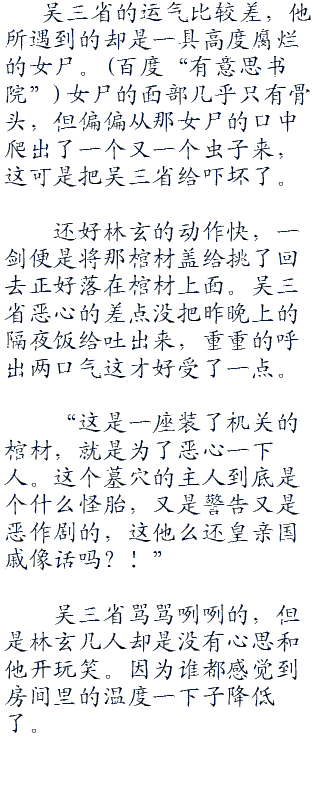 吴三省的运气比较差，他
所遇到的却是一具高度腐烂
的女尸。(百度“有意思书
院”)女尸的面部几乎只有骨
头，但偏偏从那女尸的口中
爬出了一个又一个虫子来，
这可是把吴三省给吓坏了。
还好林玄的动作快，一
剑便是将那棺材盖给挑了回
去正好落在棺材上面。吴三
省恶心的差点没把昨晚上的
隔夜饭给吐出来，重重的呼
出两口气这才好受了一点。
“这是一座装了机关的
棺材，就是为了恶心一下
人。这个墓穴的主人到底是
个什么怪胎，又是警告又是
恶作剧的，这他么还皇亲国
戚像话吗？！”
吴三省骂骂咧咧的，但
是林玄几人却是没有心思和
他开玩笑。因为谁都感觉到
房间里的温度一下子降低
了。